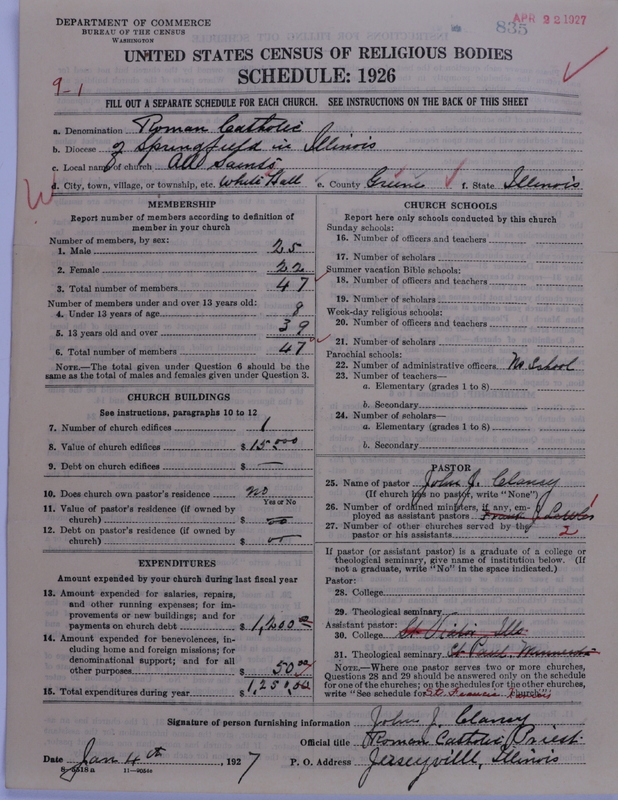 DEPARTMENT OF COMMERCE
BUREAU OF THE CENSUS
WASHINGTON
835
APR 22 1927
UNITED STATES CENSUS OF RELIGIOUS BODIES
SCHEDULE: 1926
9-1
FILL OUT A SEPARATE SCHEDULE FOR EACH CHURCH. SEE INSTRUCTIONS ON THE BACK OF THIS SHEET
a. Denomination Roman Catholic
b. Diocese of Springfield in Illinois
c. Local name of church All Saints
d. City, town, village, or township, etc. White Hall e. County Greene f. State Illinois
MEMBERSHIP
Report number of members according to definition of member in your church
Number of members, by sex:
1. Male 25
2. Female 22
3. Total number of members 47
Number of members under and over 13 years old:
4. Under 13 years of age 8
5. 13 years old and over 39
6. Total number of members 47
NOTE.—The total given under Question 6 should be the same as the total of males and females given under Question 3.
CHURCH BUILDINGS
See instructions, paragraphs 10 to 12
7. Number of church edifices 1
8. Value of church edifices $ 15,000
9. Debt on church edifices $ —
10. Does church own pastor's residence no
Yes or No
11. Value of pastor's residence (if owned by church) $
12. Debt on pastor's residence (if owned by church) $
EXPENDITURES
Amount expended by your church during last fiscal year
13. Amount expended for salaries, repairs, and other running expenses; for improvements or new buildings; and for payments on church debt $ 1,200
14. Amount expended for benevolences, including home and foreign missions; for denominational support; and for all other purposes $ 50
15. Total expenditures during year $ 1,250.00
CHURCH SCHOOLS
Report here only schools conducted by this church
Sunday schools:
16. Number of officers and teachers
17. Number of scholars
Summer vacation Bible schools:
18. Number of officers and teachers
19. Number of scholars
Week-day religious schools:
20. Number of officers and teachers
21. Number of scholars
Parochial schools:
22. Number of administrative officers No School
23. Number of teachers—
a. Elementary (grades 1 to 8)
b. Secondary
24. Number of scholars—
a. Elementary (grades 1 to 8)
b. Secondary
PASTOR
25. Name of pastor John J. Clancy
(If church has no pastor, write "None")
26. Number of ordained ministers, if any, employed as assistant pastors 1
27. Number of other churches served by the pastor or his assistants 2
If pastor (or assistant pastor) is a graduate of a college or theological seminary, give name of institution below. (If not a graduate, write "No" in the space indicated.)
Pastor:
28. College
29. Theological seminary
Assistant pastor:
30. College St Viator, Ills
31. Theological seminary St Paul Minnesota
NOTE.—Where one pastor serves two or more churches, Questions 28 and 29 should be answered only on the schedule for one of the churches; on the schedules for the other churches, write "See schedule for St. Francis Church"
Signature of person furnishing information John J. Clancy
Official title Roman Catholic Priest
Date Jan 4th, 1927 P. O. Address Jerseyville, Illinois
8-5518a 11-9054